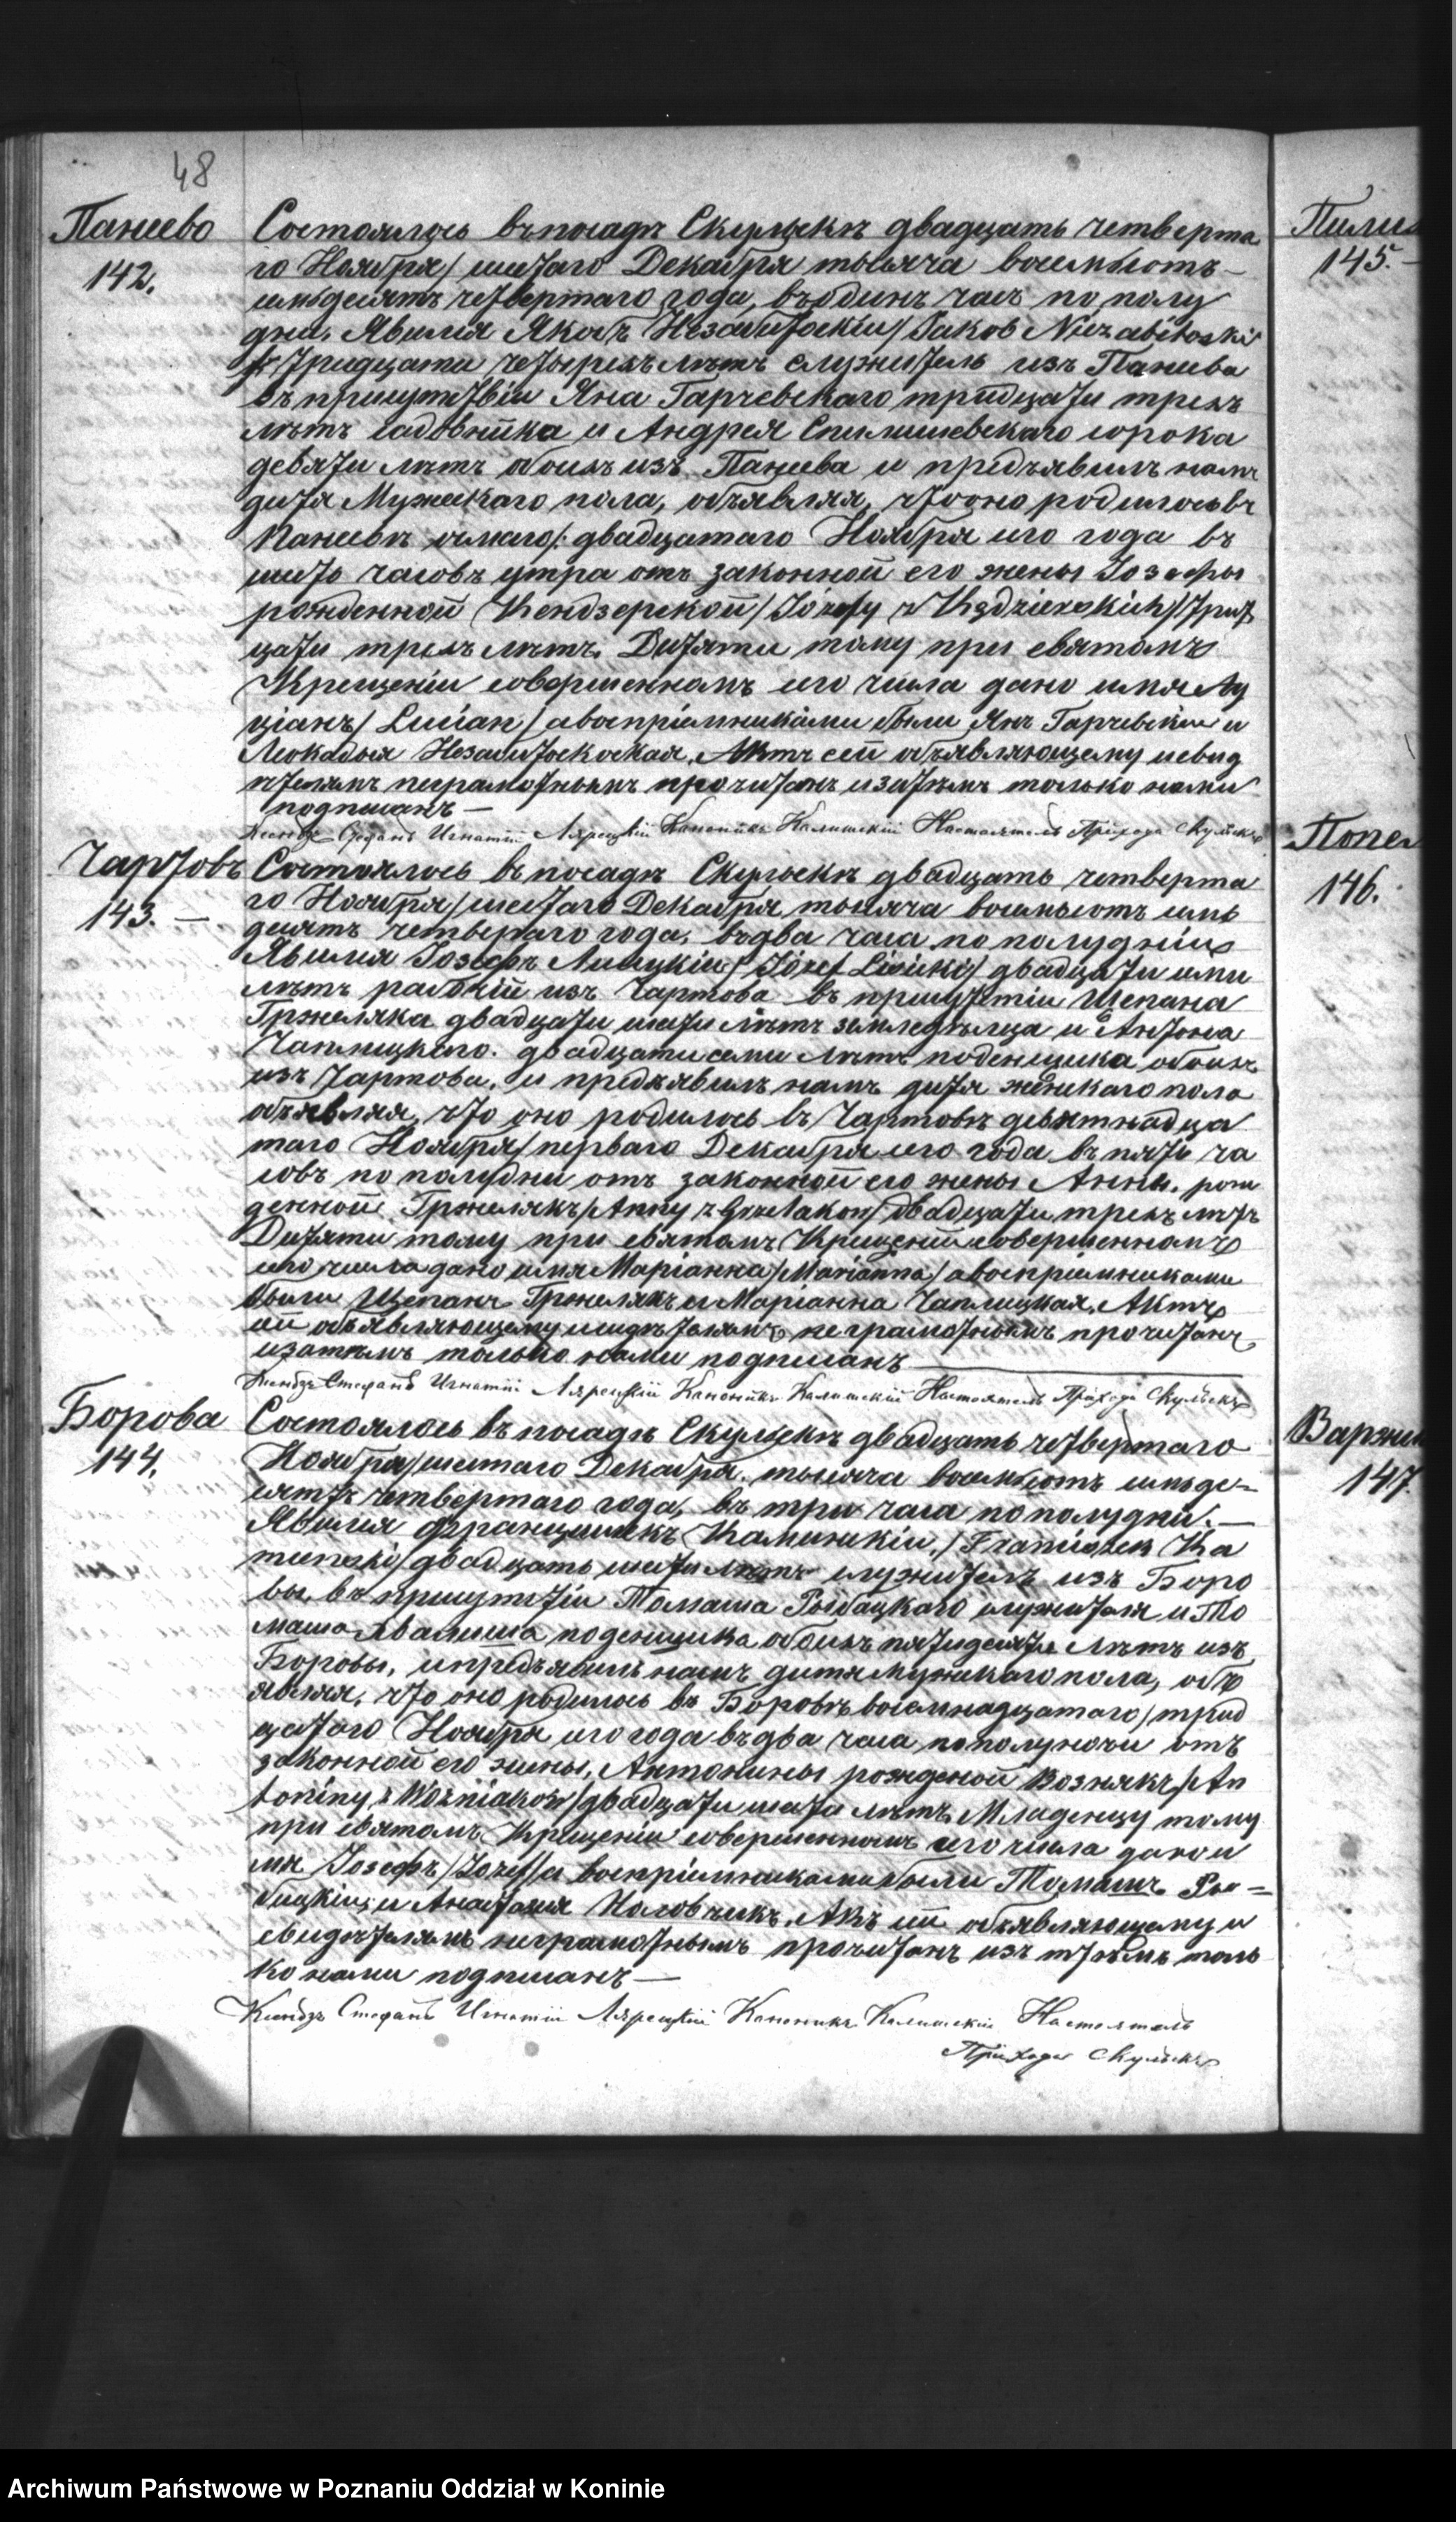 48
Панеево
142.
Состоялось въ посадѣ Скульскѣ двадцать четверта
го Ноября / шестаго Декабря тысяча восемьсотъ
семьдесятъ четвертаго года, въ одинъ часъ по полу
дни. Явился Якобъ Незабитоскій / Jakob Niezabitoski
тридцати четырехъ лѣтъ служитель изъ Панеева
въ присутствіи Яна Гарчевскаго тридцати трехъ
лѣтъ садовника и Андрея Спилишевскаго сорока
девяти лѣтъ обоихъ изъ Панеева и предъявилъ намъ
дитя Мужескаго пола, объявляя, что оно родилось въ
Панеевѣ осмаго /: двадцатаго Ноября сего года въ
шесть часовъ утра отъ законной его жены Іозефы
рожденной Кендзерской / Józefy z Kędzierskich / трид
цати трехъ лѣтъ. Дитяти тому при святомъ
Крещеніи совершенномъ сего числа дано имя Лу
ціанъ / Lucian / а воспріемниками были Янъ Гарчевскій и
Леокадія Незабитоскоская. Актъ сей объявляющему и свид
ѣтелямъ неграмотнымъ прочитанъ и затѣмъ только нами
подписанъ —
Ксендзъ Стефанъ Игнатій Каноникъ Калишскій Настоятель Прихода Скульскъ
Чартовъ
143. —
Состоялось въ посадѣ Скульскѣ двадцать четверта
го Ноября / шестаго Декабря тысяча восемьсотъ семь
десятъ четвертаго года, въ два часа по полудніи
Явился Іозефъ Лисицкій / Józef Lisicki / двадцати семи
лѣтъ рабочій изъ Чартова въ присутстіи Щепана
Гржеляка двадцати шести лѣтъ земледѣльца и Антона
Чаплицкаго. двадцати семи лѣтъ поденщика обоихъ
изъ Чартова, и предъявилъ намъ дитя женскаго пола
объявляя, что оно родилось въ Чартовѣ девятнадца
таго Ноября / перваго Декабря сего года въ пять ча
совъ по полудни отъ законной его жены Анны, рож
денной Гржелякъ / Anny z Grzelakow / двадцати трехъ лѣтъ
Дитяти тому при святомъ Крещеніи совершенномъ
сего числа дано имя Маріанна / Marianna / а воспріемниками
были Щепанъ Гржелякъ и Маріанна Чаплицкая. Актъ
сей объявляющему и свидѣтелямъ неграмотнымъ прочитанъ
и затѣмъ только нами подписанъ
Ксендзъ Стефанъ Игнатій Каноникъ Калишскій Настоятель Прихода Скульскъ
Борова
144.
Состоялось въ посадѣ Скульскѣ двадцать четвертаго
Ноября / шестаго Декабря, тысяча восемьсотъ семьде=
сятъ четвертаго года, въ три часа по полудни. —
Явился Францишекъ Каминскій, / Franciszek Ka
minski / двадцать шести лѣтъ служитель изъ Боро
вы, въ присутстіи Томаша Рыбацкаго служителя и То
маша поденщика обоихъ пятидесяти лѣтъ изъ
Боровы, и предъявилъ намъ дитя мужскаго пола, объ
являя, что оно родилось въ Боровѣ восемнадцатаго / трид
цатаго Ноября сего года въ два часа пополуночи отъ
законной его жены, Антонины рожденой Вознякъ / An
toniny z Woźniaków / двадцати шести лѣтъ Младенцу тому
при святомъ Крещеніи совершенномъ сего числа дано и
мя Іозефъ / Józef / а воспріемниками были Томашъ Ры=
бицкій и Анастазія Актъ сей объявляющему и
свидѣтелямъ неграмотнымъ прочитанъ изатѣмъ толь
ко нами подписанъ —
Ксендзъ Стефанъ Игнатій Каноникъ Калишскій Настоятель
Прихода Скульскъ
145. —
146.
147.
Archiwum Państwowe w Poznaniu Oddział w Koninie